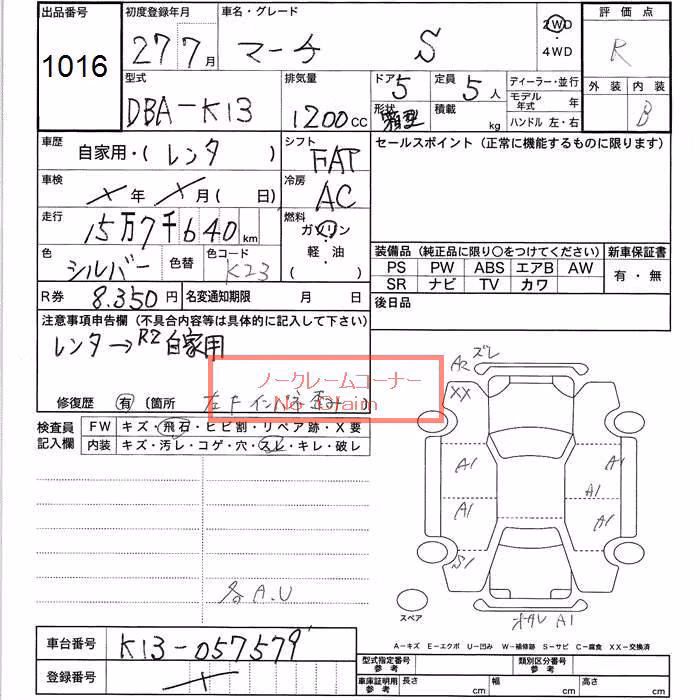 出品番号 初度登録年月 車名・グレード 2WD ・ 4WD 評価点
1016 27 7月 マーチ S R
型式 排気量 ドア 5 定員 5人 ディーラー・並行 外装 内装
DBA-K13 1200cc 形状 箱型 積載 kg モデル年式 年 B
ハンドル 左・右
車歴 自家用・(レンタ) シフト FAT セールスポイント (正常に機能するものに限ります)
車検 X年 X月 ( 日) 冷房 AC
走行 15万7千640km 燃料 ガソリン
軽・油
( )
色 シルバー 色替 色コード K23
装備品 (純正品に限り○をつけてください) 新車保証書
PS PW ABS エアB AW 有・無
SR ナビ TV カワ
R券 8.350円 名変通知期限 月 日 後日品
注意事項申告欄 (不具合内容等は具体的に記入して下さい)
レンタ→R2自家用
ノークレームコーナー
No Claim
修復歴 有 〔箇所 左Fイン
検査員記入欄 FW キズ・飛石・ヒビ割・リペア跡・X要
内装 キズ・汚レ・コゲ・穴・スレ・キレ・破レ
A2 ズレ
XX
A1 A1
A1
A1 A1
S1
各A.U
スペア
オサレ A1
A-キズ E-エクボ U-凹み W-補修跡 S-サビ C-腐食 XX-交換済
車台番号 K13-057579
登録番号
型式指定番号 参考 類別区分番号 参考
車庫証明用 参考 長さ cm 幅 cm 高さ cm